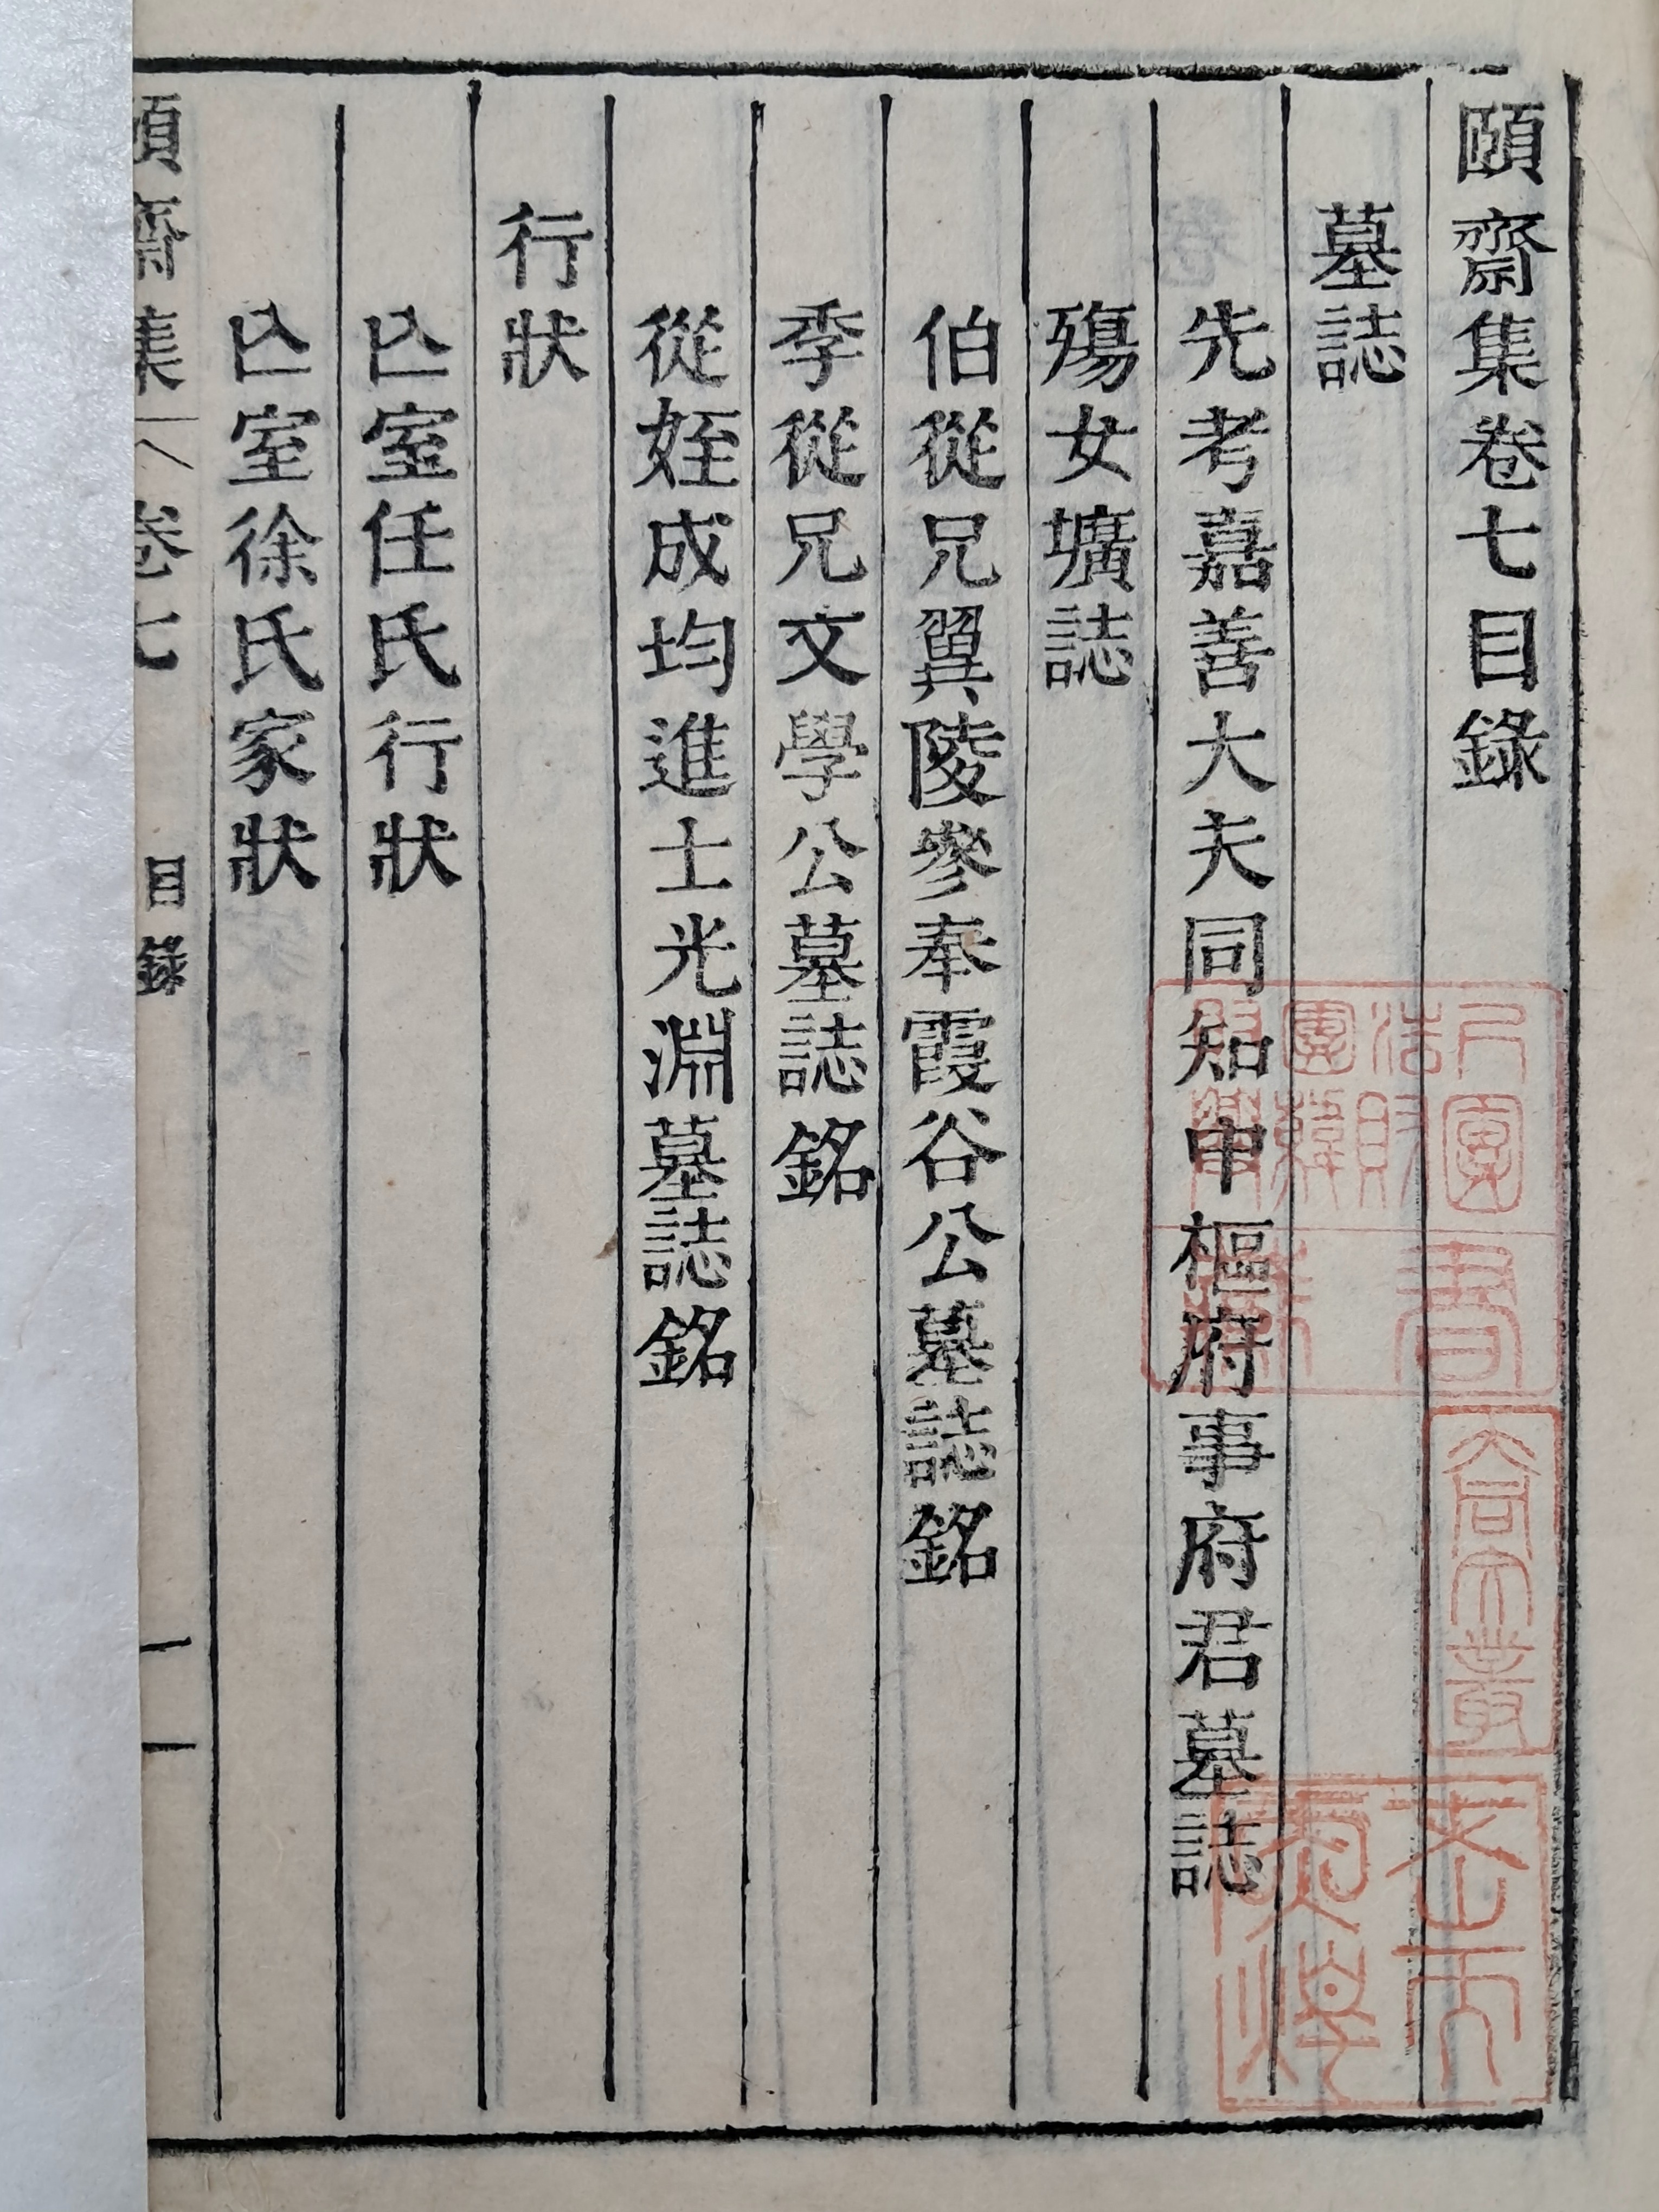 頤齋集卷七目錄
墓誌
先考嘉善大夫同知中樞府事府君墓誌
殤女壙誌
伯從兄翼陵參奉霞谷公墓誌銘
季從兄文學公墓誌銘
從姪成均進士光淵墓誌銘
行狀
亾室任氏行狀
亾室徐氏家狀
頤齋集 卷七 目錄 一